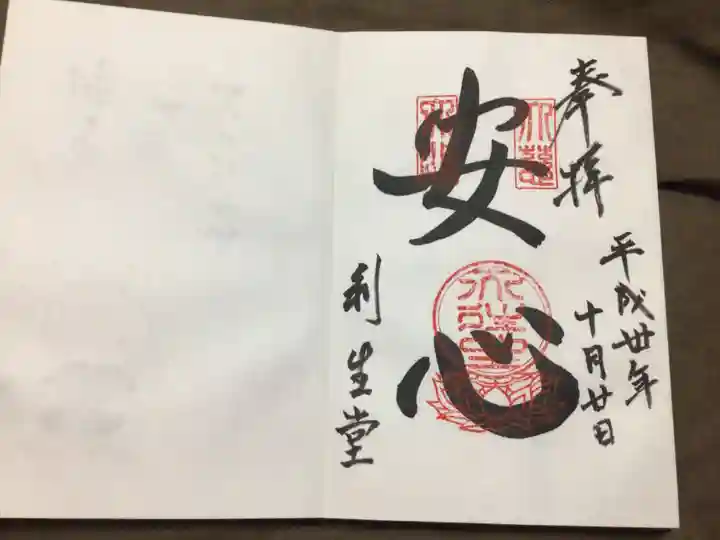 奉拝
平成丗年
十月廿日
安心
利生堂
大慈